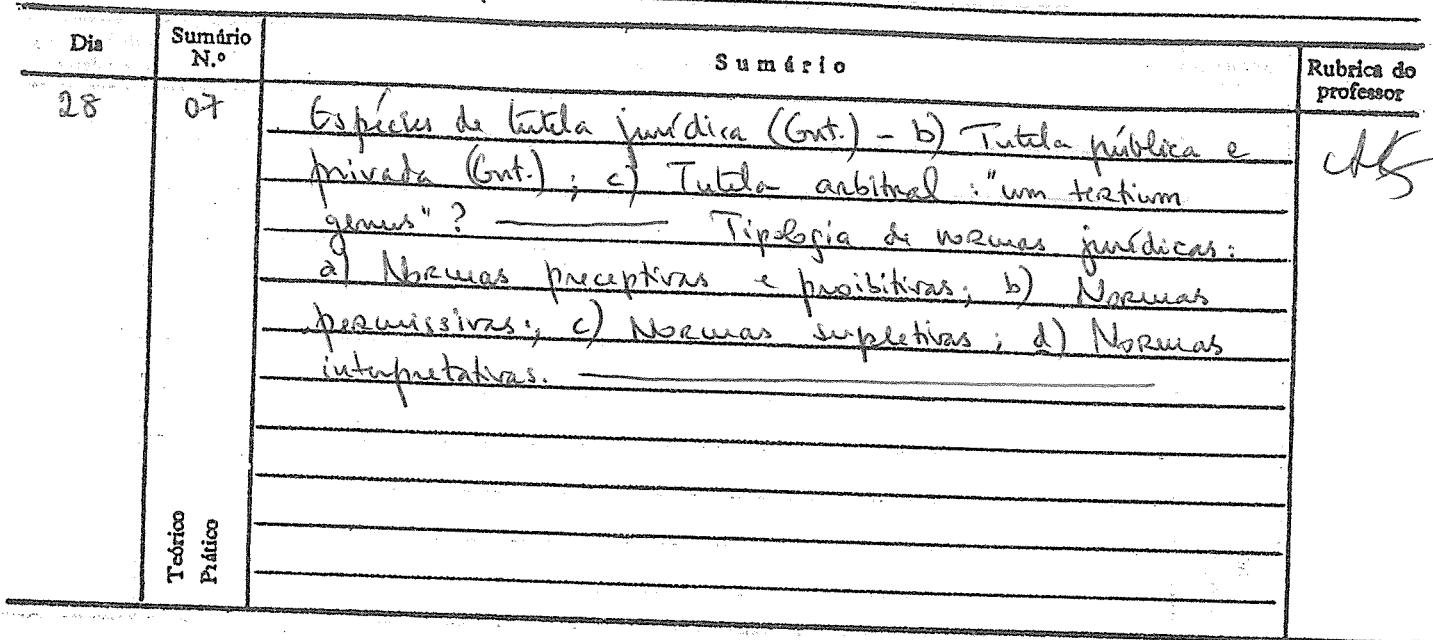 Dia
Sumário N.º
Sumário
Rubrica do professor
28
07
Espécies de tutela jurídica (Cont.) – b) Tutela pública e
privada (Cont.) ; c) Tutela arbitral : "um tertium
genus" ? ——— Tipologia de normas jurídicas:
a) Normas preceptivas e proibitivas; b) Normas
permissivas; c) Normas supletivas ; d) Normas
interpretativas. ———
Teórico
Prático